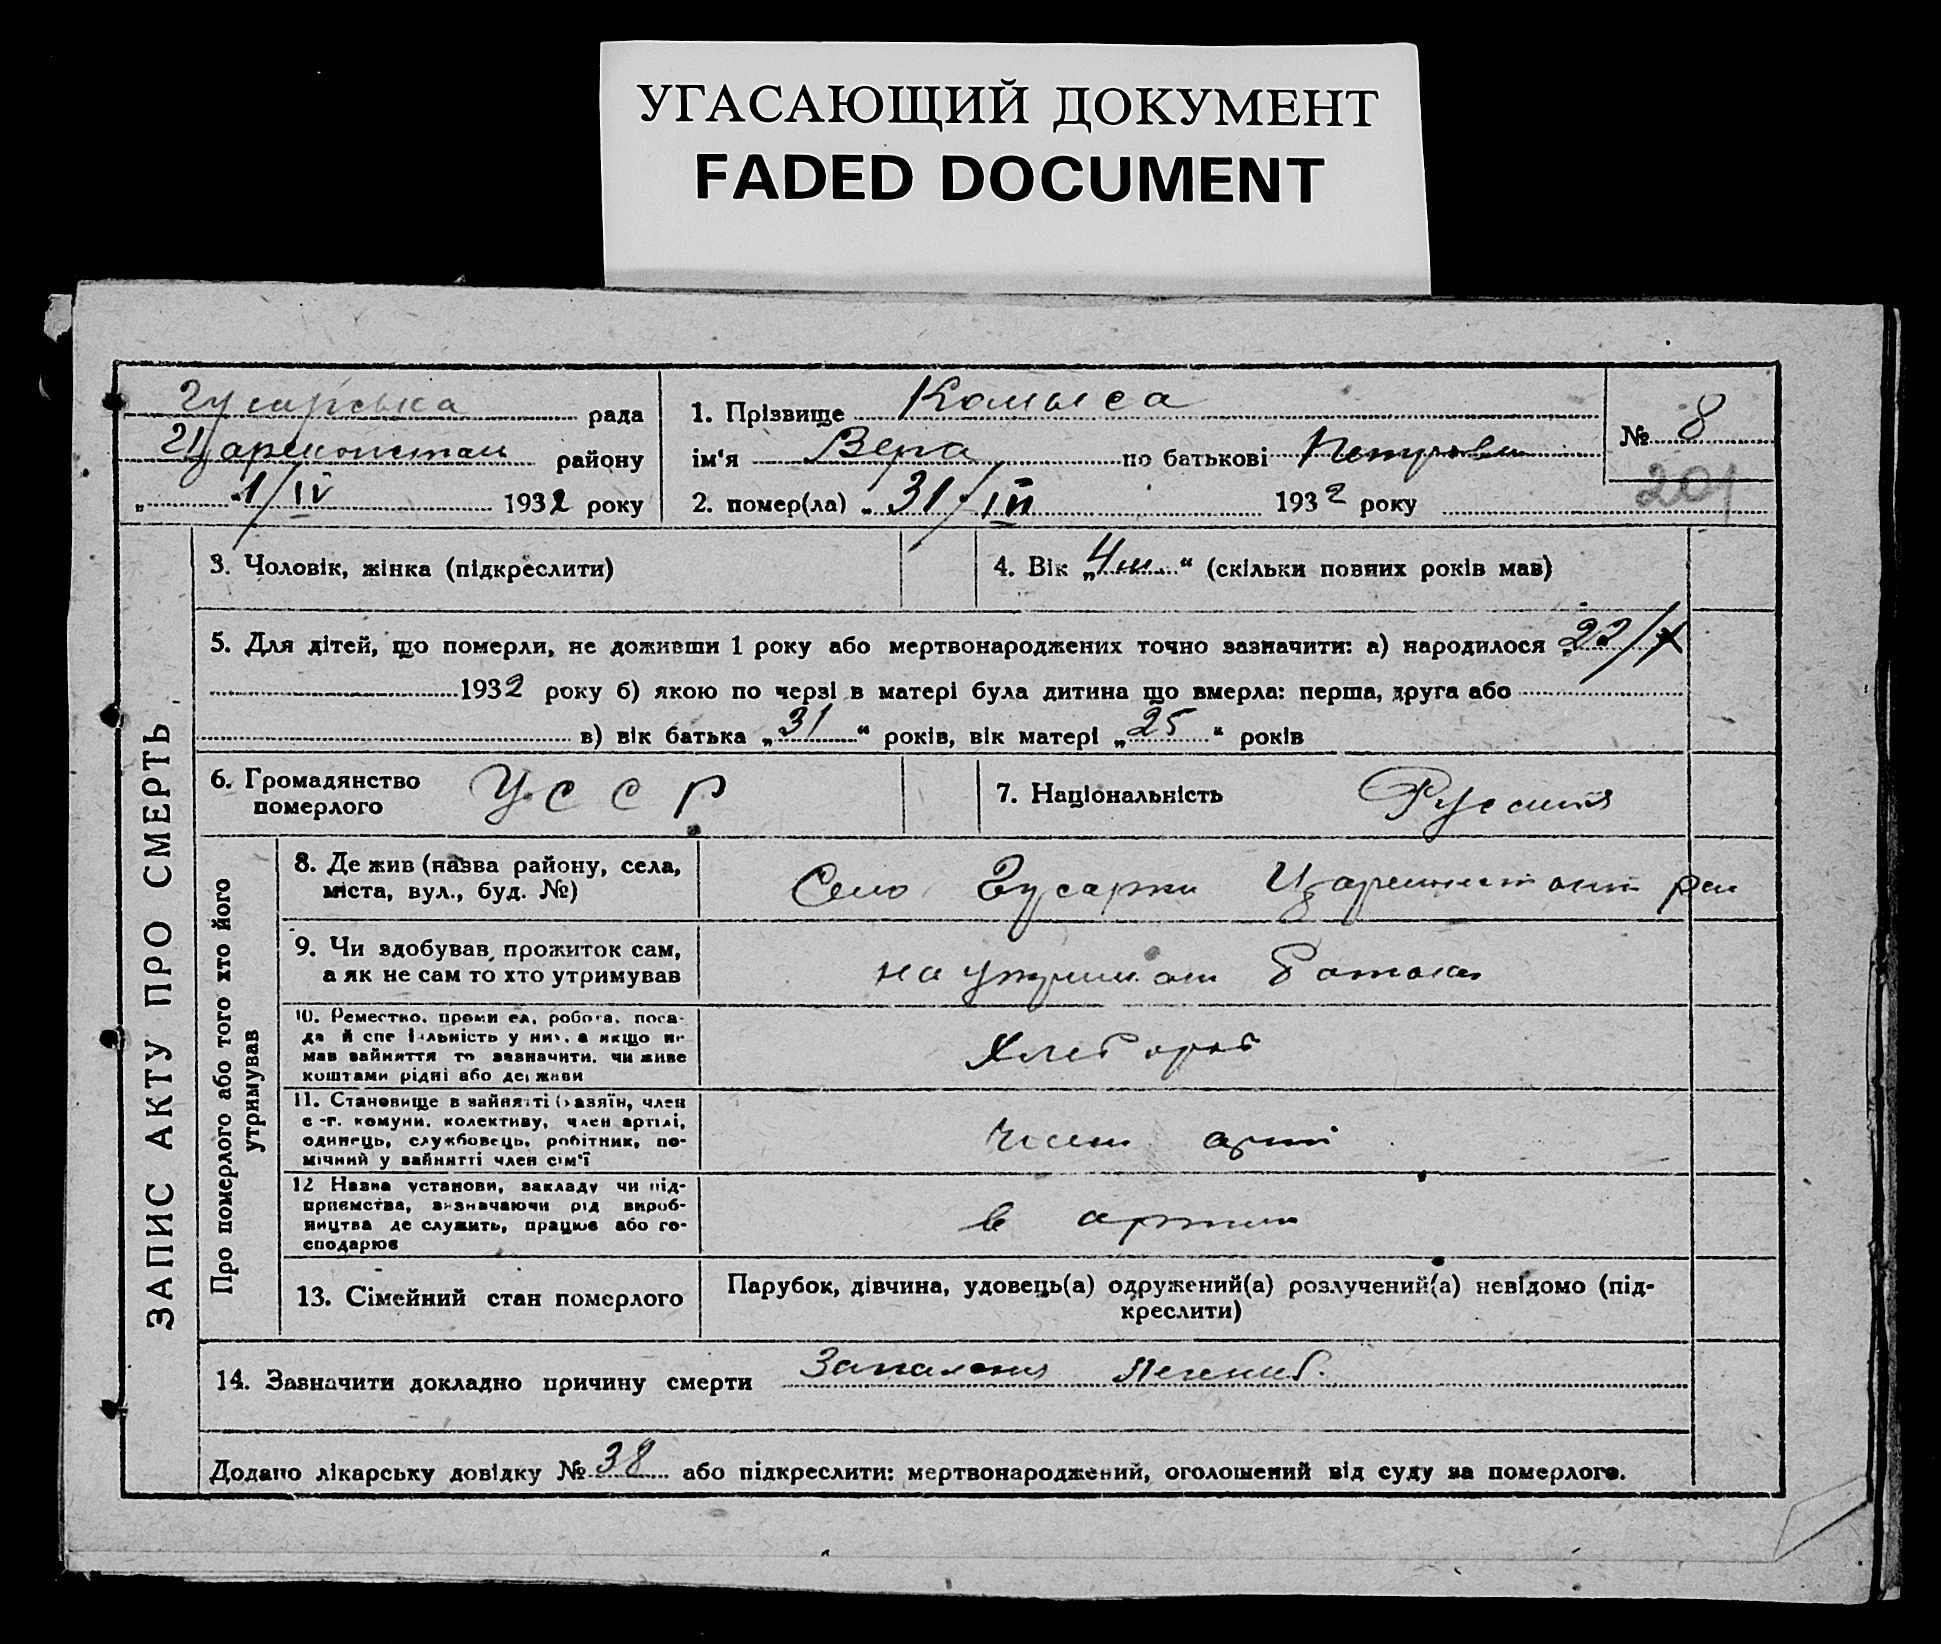 УГАСАЮЩИЙ ДОКУМЕНТ
FADED DOCUMENT
Гусарська рада
району
1/IV 1932 року
1. Прізвище
ім'я Вера по батькові
2. помер(ла) 31/ 1932 року
№ 8
201
ЗАПИС АКТУ ПРО СМЕРТЬ
3. Чоловік, жінка (підкреслити)
4. Вік „4 м.“ (скільки повних років мав)
5. Для дітей, що померли, не доживши 1 року або мертвонароджених точно зазначити: а) народилося „22/X
1932 року б) якою по черзі в матері була дитина що вмерла: перша, друга або
в) вік батька „31“ років, вік матері „25“ років
6. Громадянство
померлого
УССР
7. Національність
Про померлого або того хто його
утримував
8. Де жив (назва району, села,
міста, вул., буд. №)
Село Гусарки
9. Чи здобував прожиток сам,
а як не сам то хто утримував
на
10. Ремество, промисел, робота, поса-
да й спеціяльність у них, а якщо не
мав зайняття то зазначити, чи живе
коштами рідні або держави
Хлебороб
11. Становище в зайнятті (хазяїн, член
с.-г. комуни, колективу, член артілі,
одинець, службовець, робітник, по-
мічний у зайнятті член сім'ї
член
12 Назва установи, закладу чи під-
приємства, визначаючи рід вироб-
ництва де служить, працює або го-
сподарює
в артели
13. Сімейний стан померлого
Парубок, дівчина, удовець(а) одружений(а) розлучений(а) невідомо (під-
креслити)
14. Зазначити докладно причину смерти
Додано лікарську довідку № 38 або підкреслити: мертвонароджений, оголошений від суду за померлого.